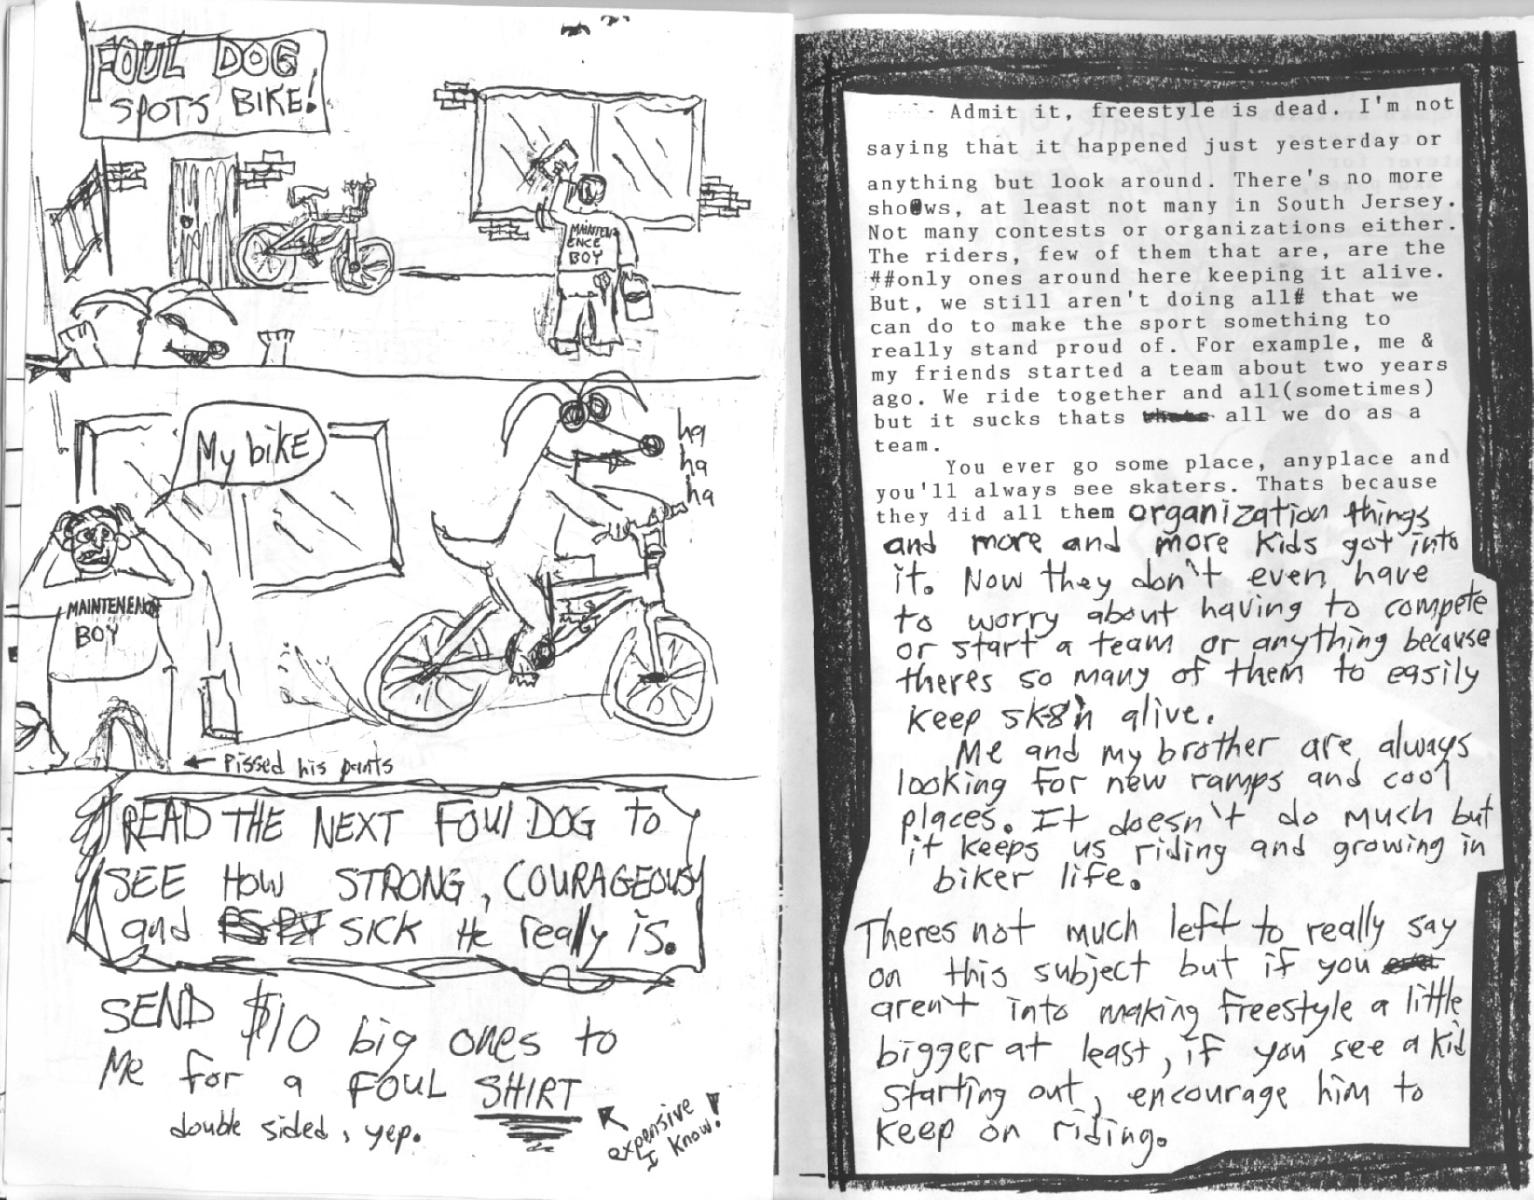 FOUL DOG
SPOTS BIKE!
MAINTEN
ENCE
BOY
My bike
ha
ha
ha
MAINTENENCE
BOY
← Pissed his pants
READ THE NEXT FOUL DOG to
SEE HOW STRONG, COURAGEOUS
and SICK He really is.
SEND $10 big ones to
Me for a FOUL SHIRT
double sided, yep.
expensive
I know!
- Admit it, freestyle is dead. I'm not
saying that it happened just yesterday or
anything but look around. There's no more
shows, at least not many in South Jersey.
Not many contests or organizations either.
The riders, few of them that are, are the
##only ones around here keeping it alive.
But, we still aren't doing all# that we
can do to make the sport something to
really stand proud of. For example, me &
my friends started a team about two years
ago. We ride together and all(sometimes)
but it sucks thats thats all we do as a
team.
You ever go some place, anyplace and
you'll always see skaters. Thats because
they did all them organization things
and more and more kids got into
it. Now they don't even have
to worry about having to compete
or start a team or anything because
theres so many of them to easily
keep sk8'n alive.
Me and my brother are always
looking for new ramps and cool
places. It doesn't do much but
it keeps us riding and growing in
biker life.
Theres not much left to really say
on this subject but if you
aren't into making freestyle a little
bigger at least, if you see a kid
starting out, encourage him to
keep on riding.